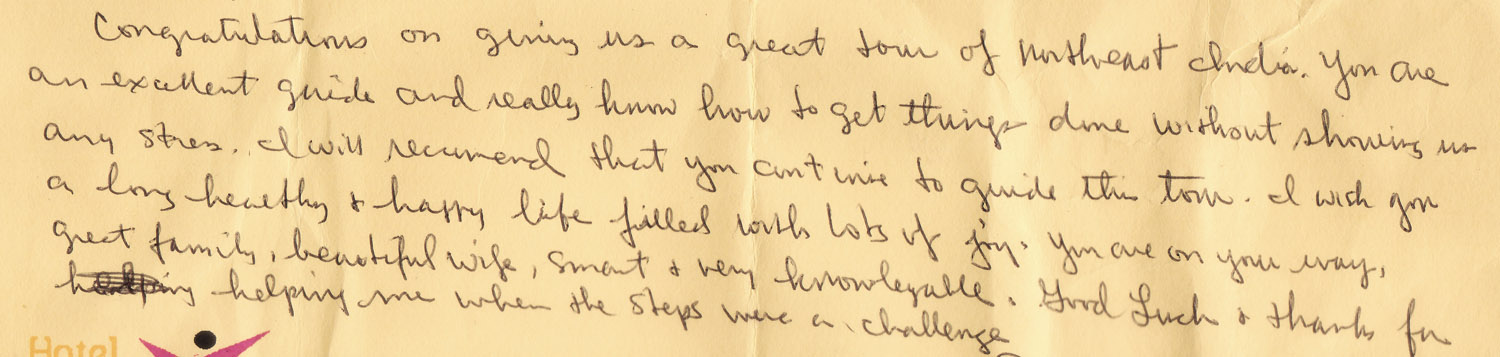 Congratulations on giving us a great tour of Northeast India. You are
an excellent guide and really know how to get things done without showing us
any stress. I will recommend that you continue to guide this tour. I wish you
a long healthy & happy life filled with lots of joy. You are on your way,
great family, beautiful wife, smart & very knowlegable. Good Luck & thanks for
helping me when the steps were a challenge
Hotel